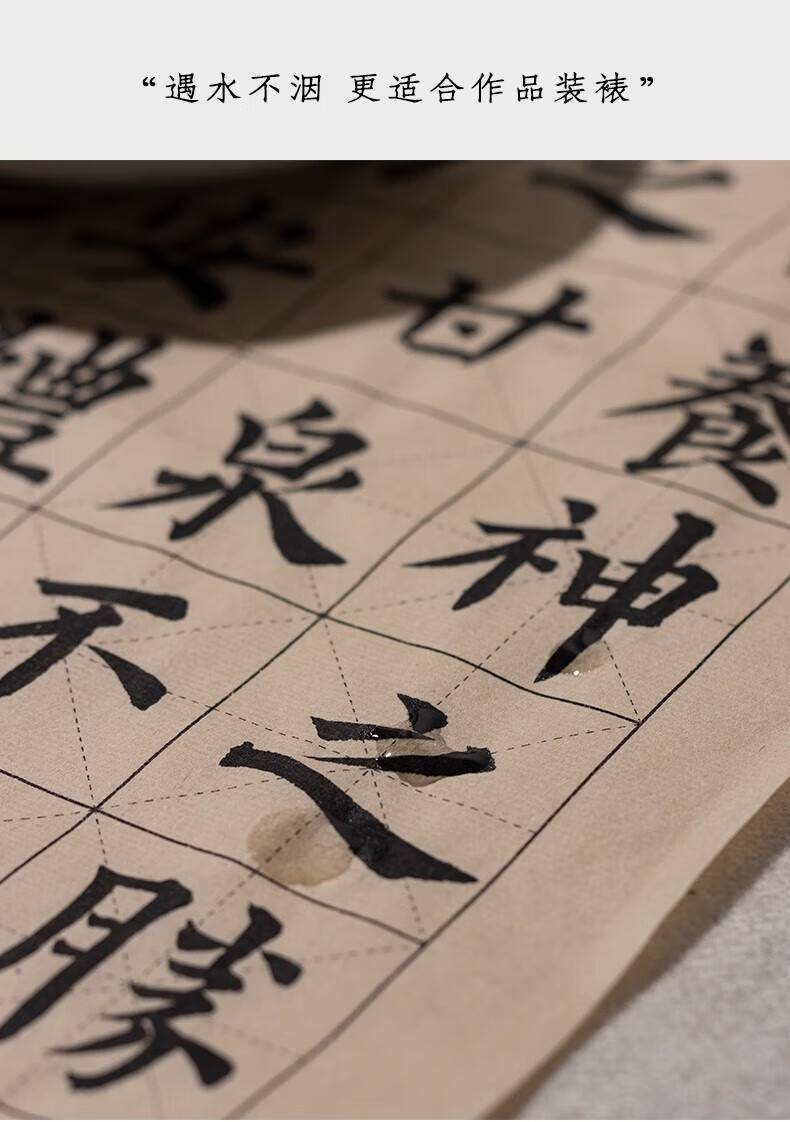 “遇水不洇 更适合作品装裱”
養神之勝
之甘泉不
體